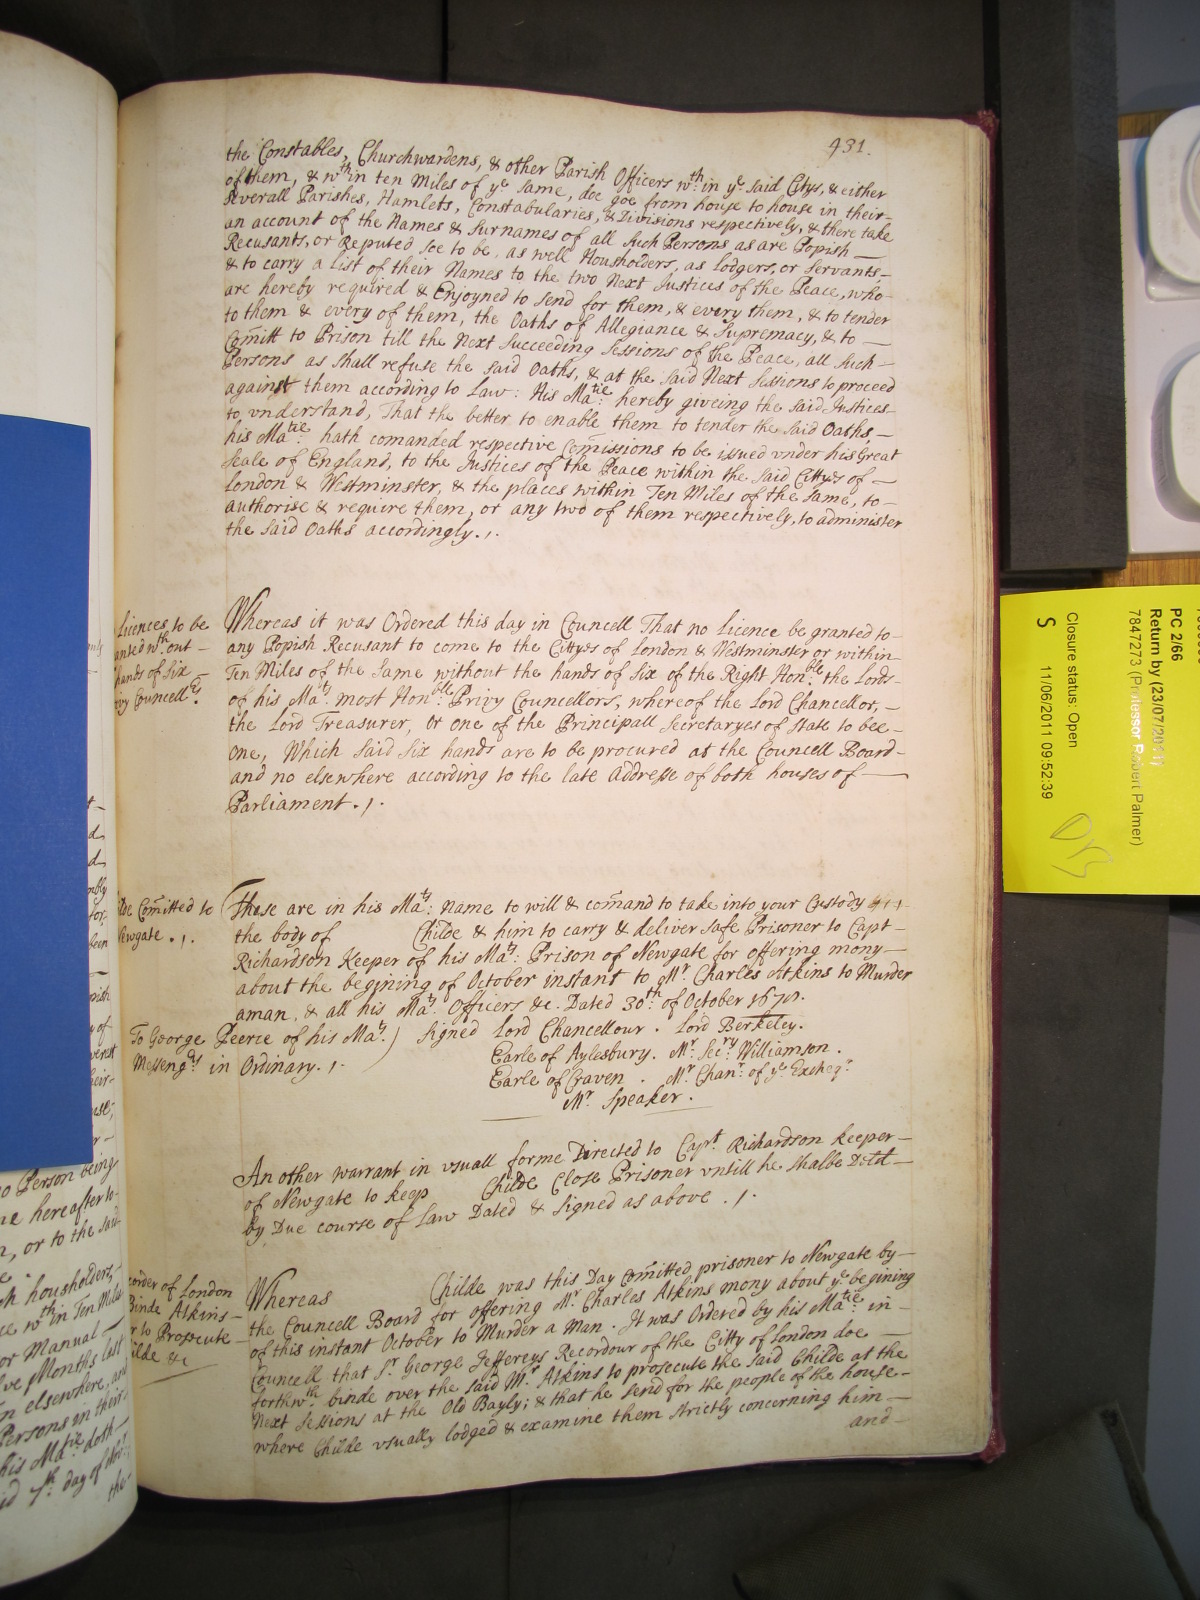 431.
the Constables, Churchwardens, & other Parish Officers wth.in ye. said Citys, & either
of them, & wth.in ten Miles of ye. same, doe goe from house to house in their
severall Parishes, Hamlets, Constabularies, & Divisions respectively, & there take
an account of the Names & Surnames of all such Persons as are Popish
Recusants, or Reputed soe to be, as well Housholders, as lodgers, or Servants
& to carry a List of their Names to the two Next Justices of the Peace, who
are hereby required & Enjoyned to send for them, & every them, & to tender
to them & every of them, the Oaths of Allegiance & Supremacy, & to
Com̄itt to Prison till the Next Succeeding Sessions of the Peace, all such
Persons as shall refuse the said Oaths, & at the said Next Sessions to proceed
against them according to Law: His Matie. hereby giveing the said Justices
to vnderstand, That the better to enable them to tender the said Oaths,
his Matie. hath comanded respective Com̄issions to be issued vnder his Great
Seale of England, to the Justices of the Peace within the said Cittyes of
London & Westminster, & the places within Ten Miles of the same, to
authorise & require them, or any two of them respectively, to administer
the said Oaths accordingly. ,.
Licences to be
anted wth.out
hands of six
ivy Councellrs.
Whereas it was Ordered this day in Councell That no licence be granted to
any Popish Recusant to come to the Cittyes of London & Westminster or within
Ten Miles of the same without the hands of six of the Right Honble. the Lords
of his Mats. most Honble. Privy Councellors, whereof the Lord Chancellor,
the Lord Treasurer, or one of the Principall Secretaryes of State to bee
one, Which said six hands are to be procured at the Councell Board
and no elsewhere according to the late Addresse of both houses of
Parliament. ,.
ilde Com̄itted to
Newgate. ,.
These are in his Mats: Name to will & com̄and to take into your Custody
the body of Childe & him to carry & deliver safe Prisoner to Capt
Richardson Keeper of his Mats: Prison of Newgate for offering mony
about the begining of October instant to Mr. Charles Atkins to Murder
aman, & all his Mats. Officers &c. Dated 30th. of October 1678.
To George Peerce of his Mats.) Signed Lord Chancellour. Lord Berkeley.
Messengrs. in Ordinary. ,. Earle of Aylesbury. Mr. Secry. Williamson.
Earle of Craven. Mr. Chanr. of ye. Excheqr.
Mr. Speaker.
An other warrant in vsuall forme Directed to Capt. Richardson keeper
of Newgate to keep Childe Close Prisoner vntill he shalbe Deld
by Due course of Law Dated & Signed as above. ,.
corder of London
Binde Atkins
r to Prosecute
ilde &c
Whereas Childe was this Day Com̄itted prisoner to Newgate by
the Councell Board for offering Mr. Charles Atkins mony about ye. begining
of this instant October to Murder a Man. It was Ordered by his Matie. in
Councell that Sr. George Jeffereys Recordour of the Citty of London doe
forthwth. binde over the said Mr. Atkins to prosecute the said Childe at the
Next Sessions at the Old Bayly; & that he send for the people of the house
where Childe vsually lodged & examine them strictly concerning him
and
o Person being
ne hereafter to
n, or to the said
h housholders,
ce wth.in Ten Miles
or Manual
lve Months last
n elsewhere, and
Persons in their
his Matie. doth
id 7th. day of Novr.
the
PC 2/66
Return by (23/07/2011)
7847273 (Professor Robert Palmer)
Closure status: Open
S 11/06/2011 09:52:39